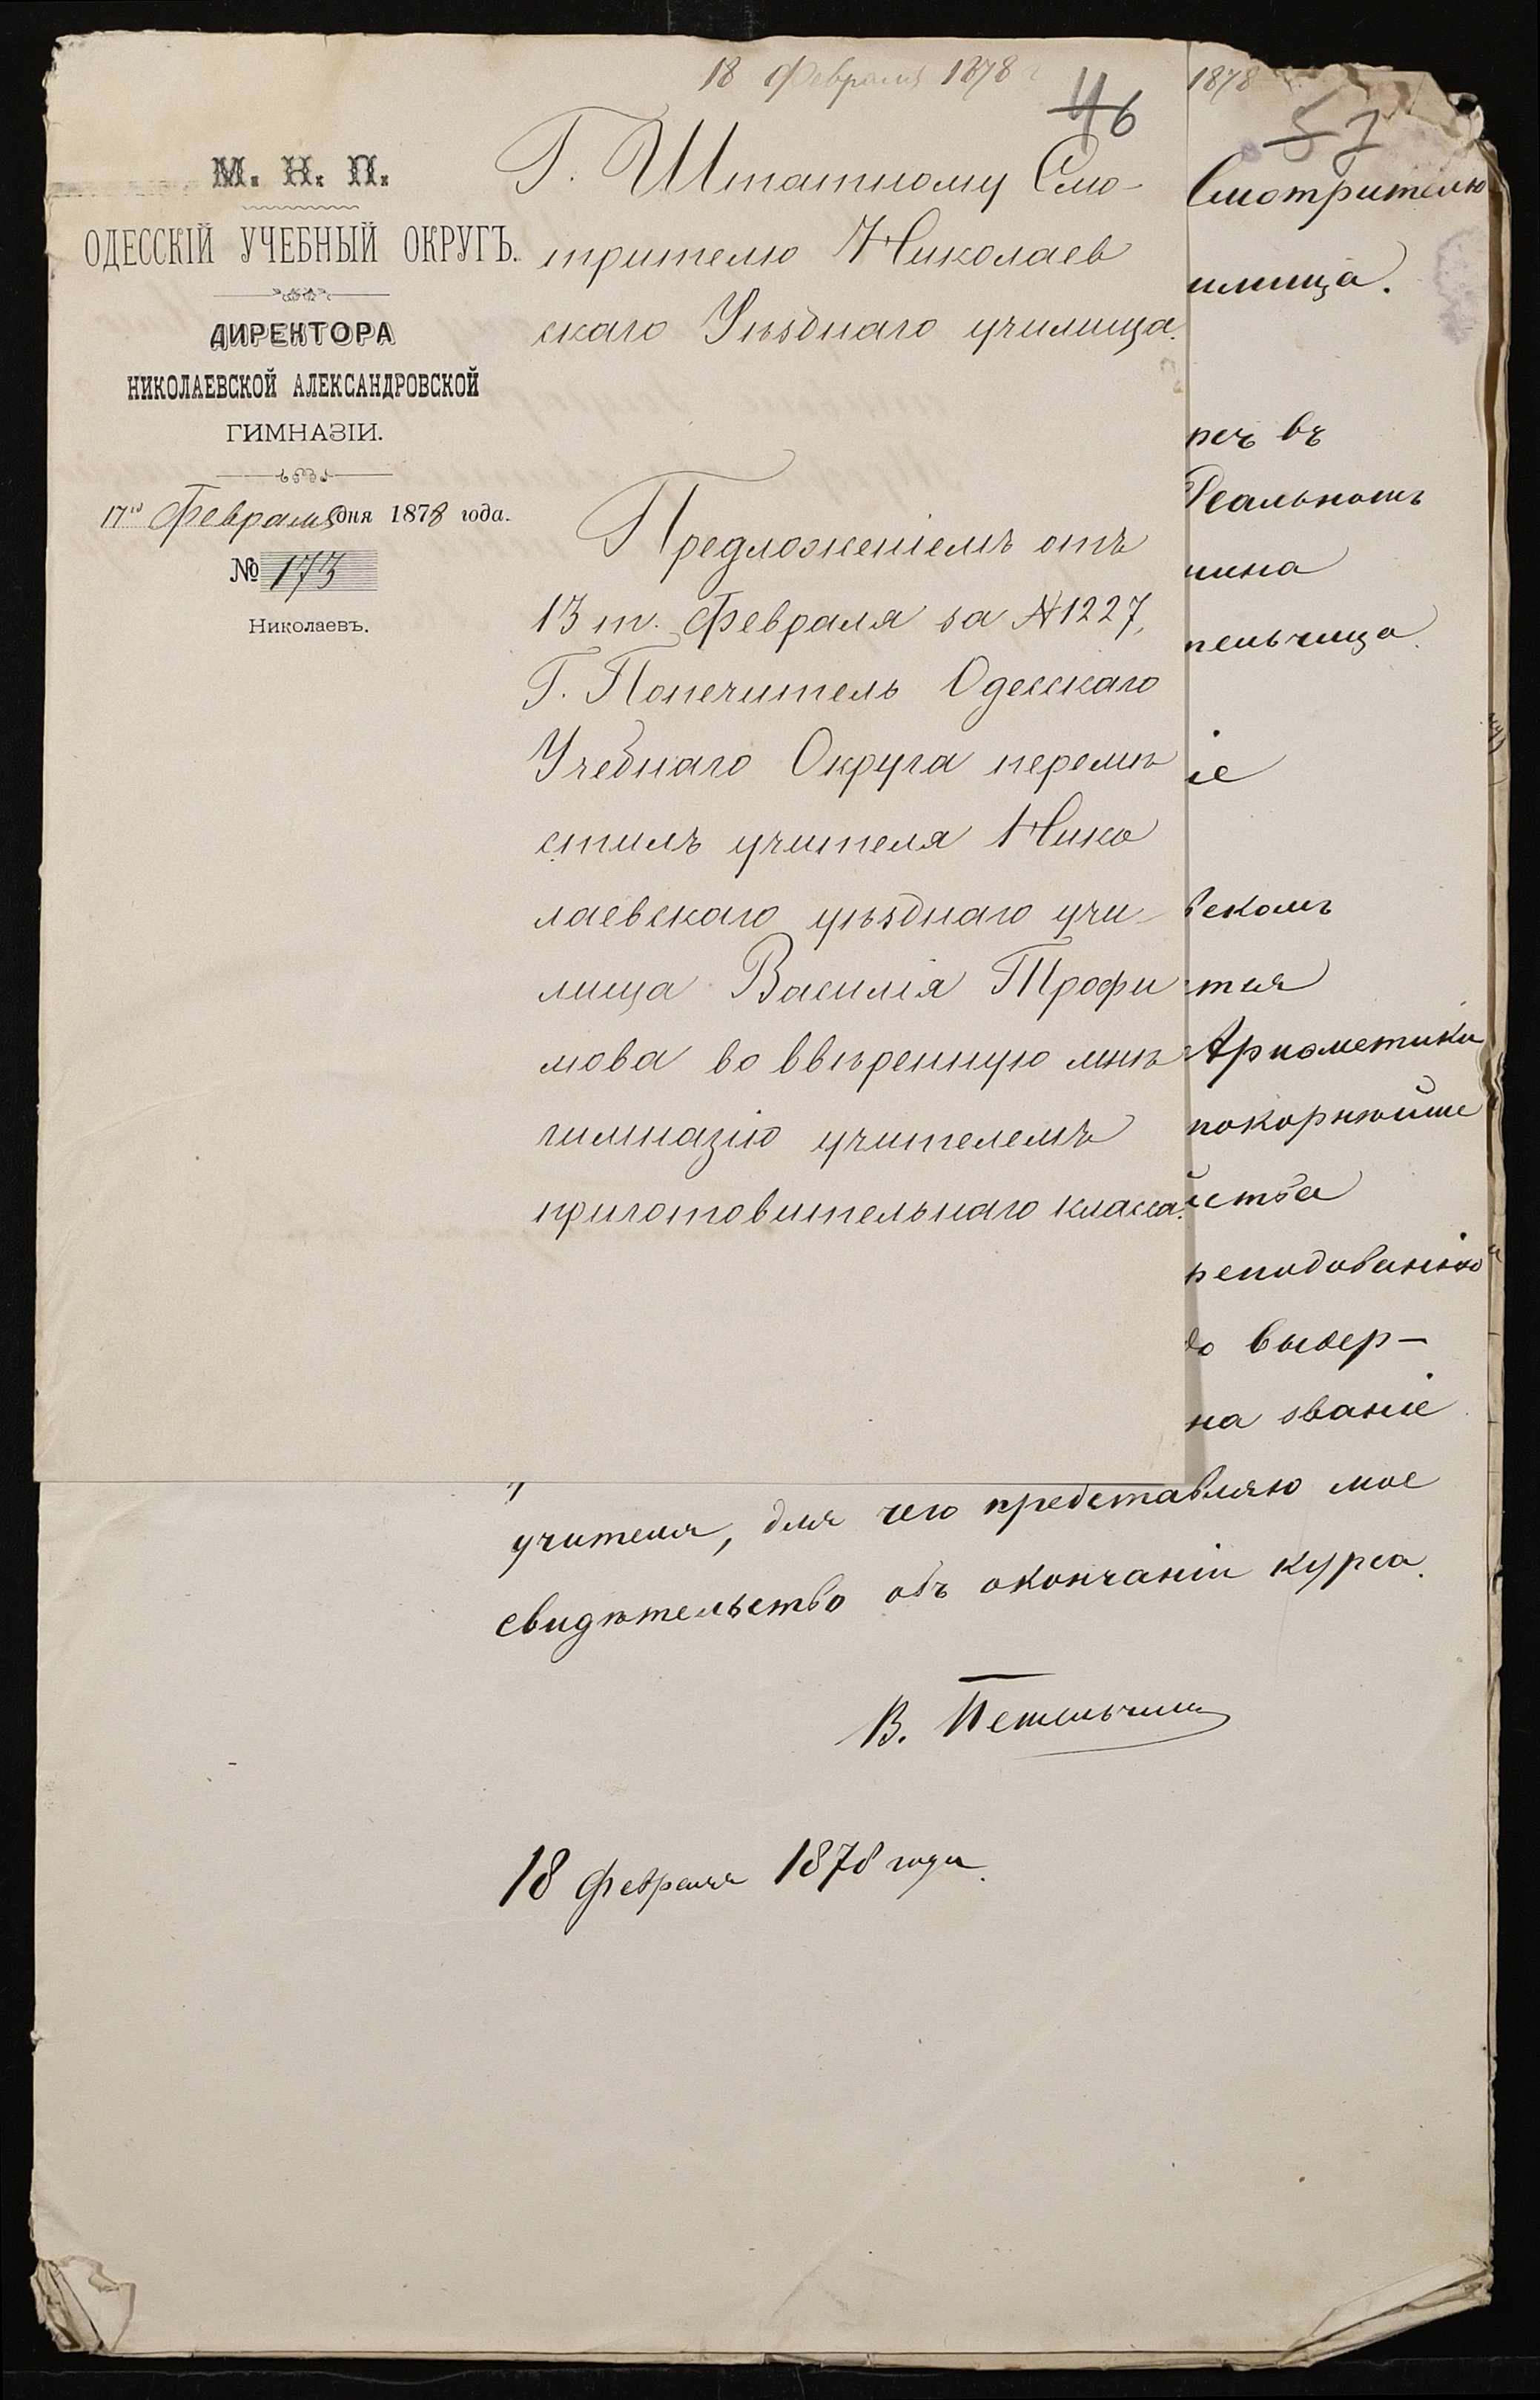 18 Февраля 1878
46
М. Н. П.
ОДЕССКІЙ УЧЕБНЫЙ ОКРУГЪ.
ДИРЕКТОРА
НИКОЛАЕВСКОЙ АЛЕКСАНДРОВСКОЙ
ГИМНАЗІИ.
17го Февраля дня 1878 года.
№ 173
Николаевъ.
Г. Штатному Смо-
трителю Николаев
скаго Уѣзднаго училища.
Предложеніемъ отъ
13 т. Февраля за № 1227,
Г. Попечитель Одесскаго
Учебнаго Округа перемѣ
стилъ учителя Нико
лаевскаго уѣзднаго учи-
лища Василія Трофи
мова во ввѣренную мнѣ
гимназію учителемъ
приготовительнаго класса.
1878
57
Смотрителю
илища.
въ
Реальномъ
нина
тельчица.
іе
вскомъ
тія
Арифметики
покорнѣйше
йства
реподованію
до выдер-
на званіе
учителя, для чего представляю мое
свидѣтельство объ окончаніи курса.
В. Петельчиц
18 Февраля 1878 года.